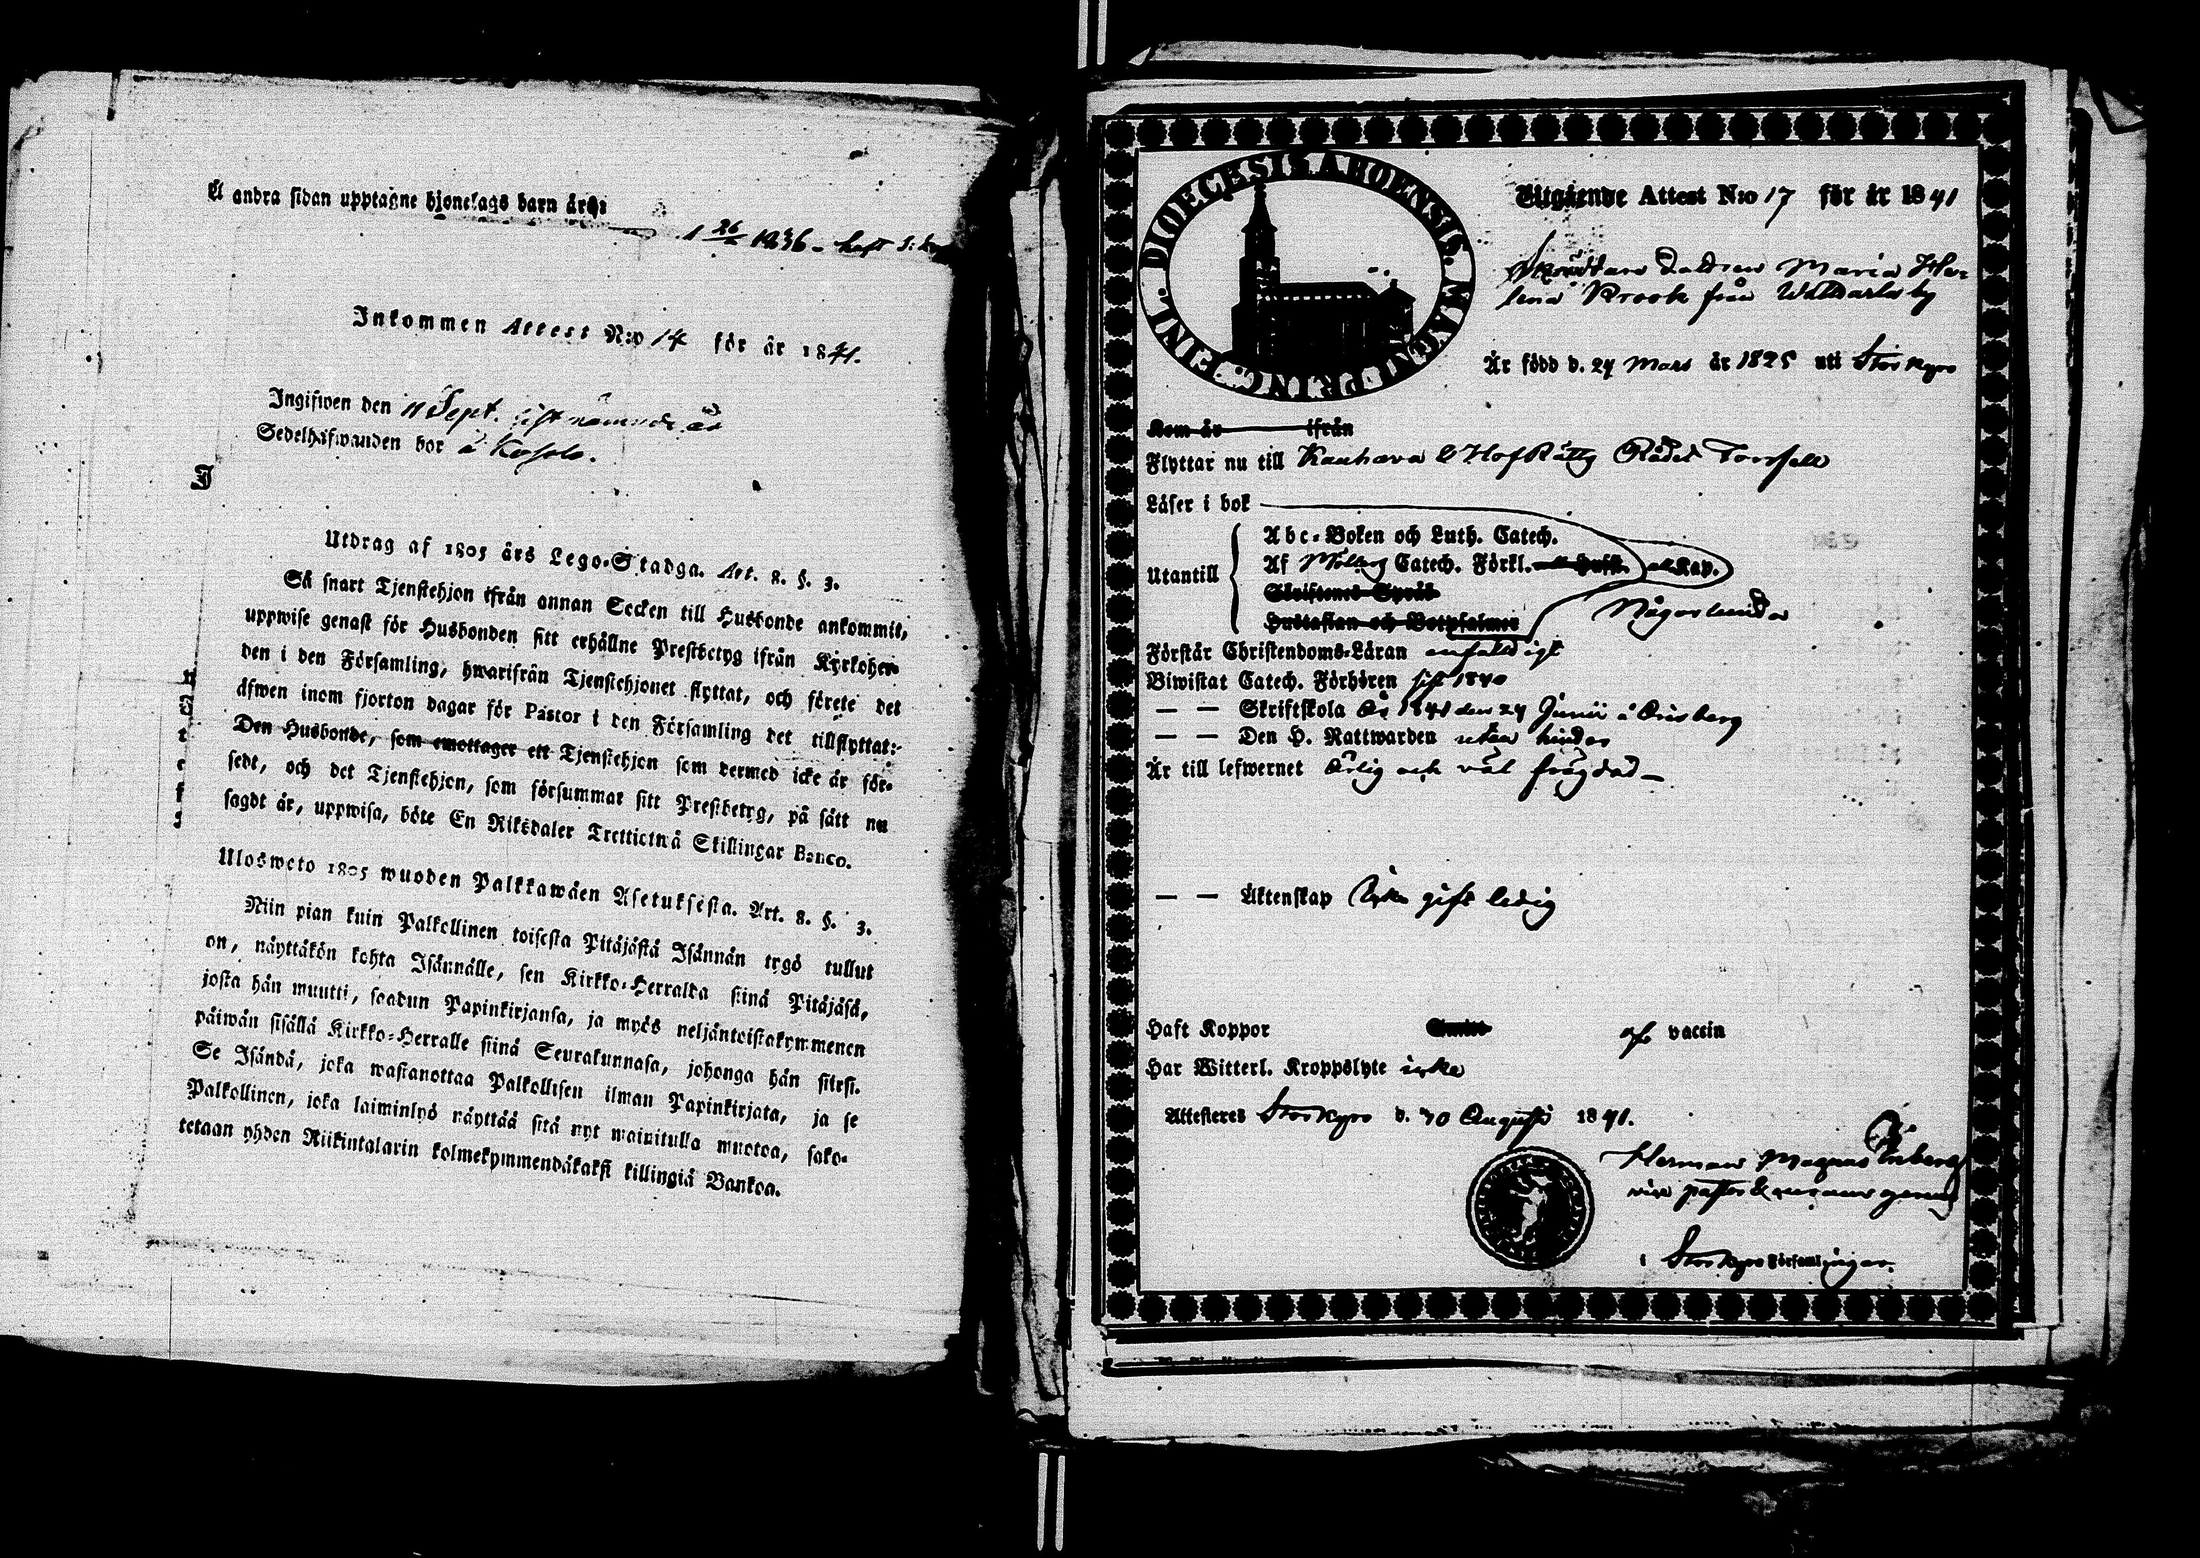 Å andra sidan upptagne hjonelags barn äro:
1 26/ 1836 - haft
Inkommen Attest N:o 14 för år 1841.
Ingifwen den 11 Sept. sistnämnde år
Sedelhafwanden bor å
Utdrag af 1805 års Lego-Stadga. Art. 8. §. 3.
Så snart Tjenstehjon ifrån annan Socken till Husbonde ankommit,
uppwise genast för Husbonden sitt erhållne Prestbetyg ifrån Kyrkoher-
den i den Församling, hwarifrån Tjenstehjonet flyttat, och förete det
äfwen inom fjorton dagar för Pastor i den Församling det tillflyttat:
Den Husbonde, som emottager ett Tjenstehjon som dermed icke är för-
sedt, och det Tjenstehjon, som försummar sitt Prestbetyg, på sätt nu
sagdt är, uppwisa, böte En Riksdaler Trettiotwå Skillingar Banco.
Ulosweto 1805 wuoden Palkkawäen Asetuksesta. Art. 8. §. 3.
Niin pian kuin Palkollinen toisesta Pitäjästä Isännän tygö tullut
on, näyttäkön kohta Isännälle, sen Kirkko-Herralda siinä Pitäjäsä,
josta hän muutti, saadun Papinkirjansa, ja myös neljäntoistakymmenen
päiwän sisällä Kirkko-Herralle siinä Seurakunnasa, johonga hän siirsi.
Se Isändä, joka wastanottaa Palkollisen ilman Papinkirjata, ja se
Palkollinen, joka laiminlyö näyttää sitä nyt mainitulla muotoa, sako-
tetaan yhden Riikintalarin kolmekymmendäkaksi killingiä Bankoa.
DIOECESIS ABOENSIS. MAGNI PRINC. FINL.
Utgående Attest N:o 17 för år 1841
Skräddare Dottren Maria He-
lena Krook från
Är född d. 24 Mars år 1825 uti Storkyro
Kom år ifrån
Flyttar nu till Kauhava & HofRätts Rådet Forssell
Läser i bok
Abc-Boken och Luth. Catech.
Utantill Af Möllers Catech. Förkl. Kap.
Skriftenes Språk
Hustaflan och Botpsalmer Någorlunda
Förstår Christendoms-Läran enfaldigt
Biwistat Catech. Förhören sist 1840
— — Skriftskola År 1841 den 24 Junii å Orisberg
— — Den H. Nattwarden utan hinder
Är till lefwernet Ärlig och väl frägdad —
— — Äktenskap icke gift ledig
Haft Koppor af vaccin
Har Witterl. Kroppslyte icke
Attesteras Storkyro d. 30 Augusti 1841.
Herman Magnus
vice pastor &
i Storkyro Församlingar.